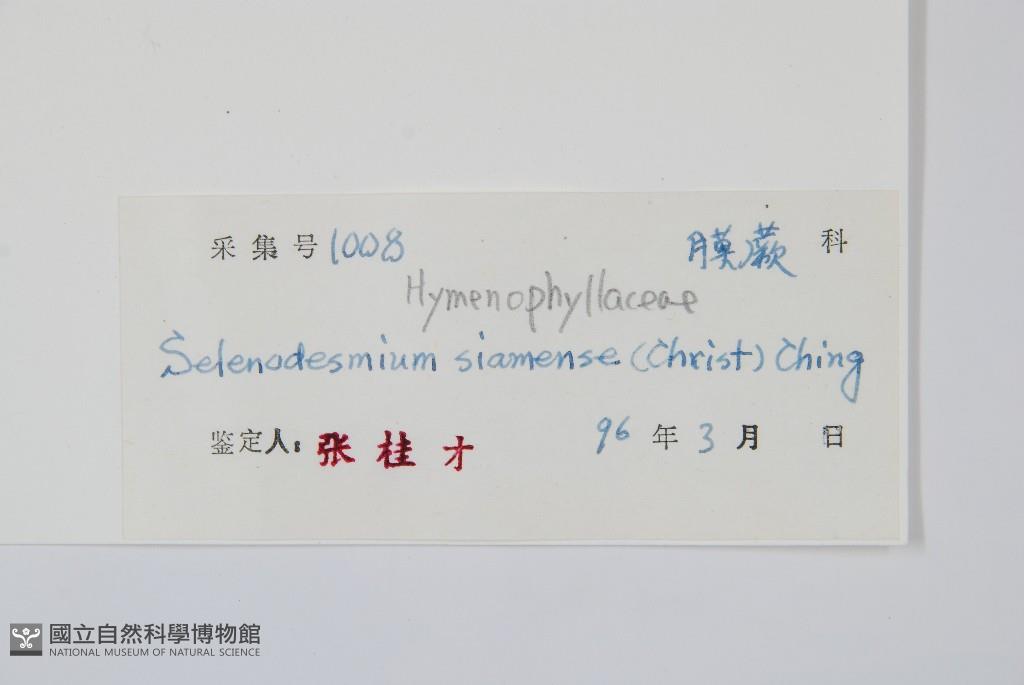 采集号 1008 膜蕨 科
Hymenophyllaceae
Selenodesmium siamense (Christ) Ching
鉴定人: 张桂才 96 年 3 月 日
國立自然科學博物館
NATIONAL MUSEUM OF NATURAL SCIENCE